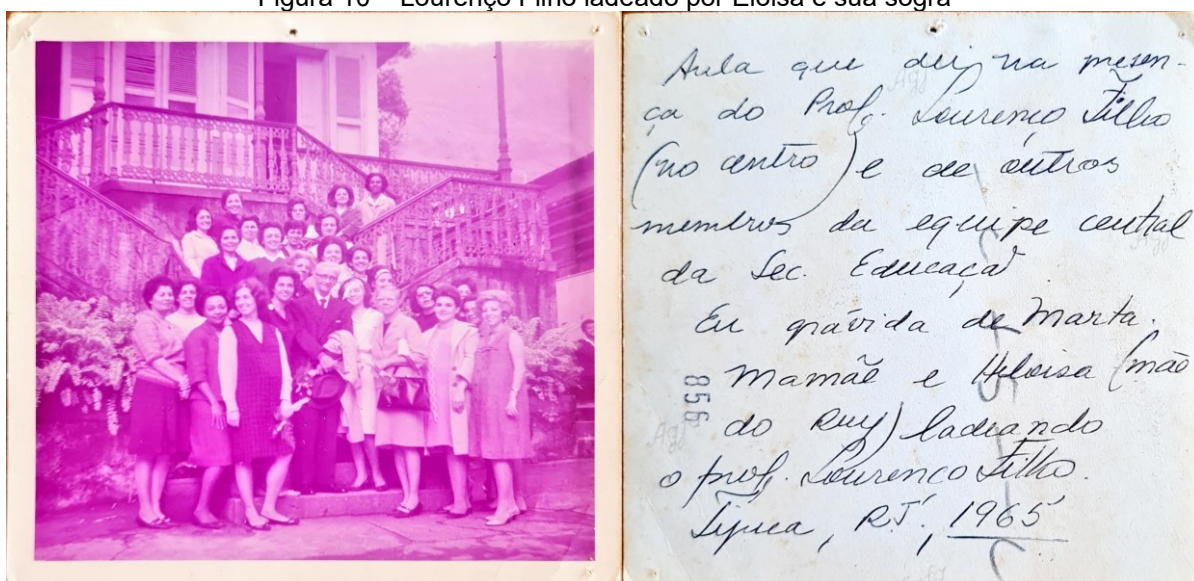 Figura 10 – Lourenço Filho ladeado por Eloisa e sua sogra
Aula que dei na presen-
ça do Prof. Lourenço Filho
(no centro) e de outros
membros da equipe central
da Sec. Educação
Eu grávida de Marta.
Mamãe e Heloisa (mãe
do Ruy) ladeando
856
o prof. Lourenço Filho.
Tijuca, RJ, 1965